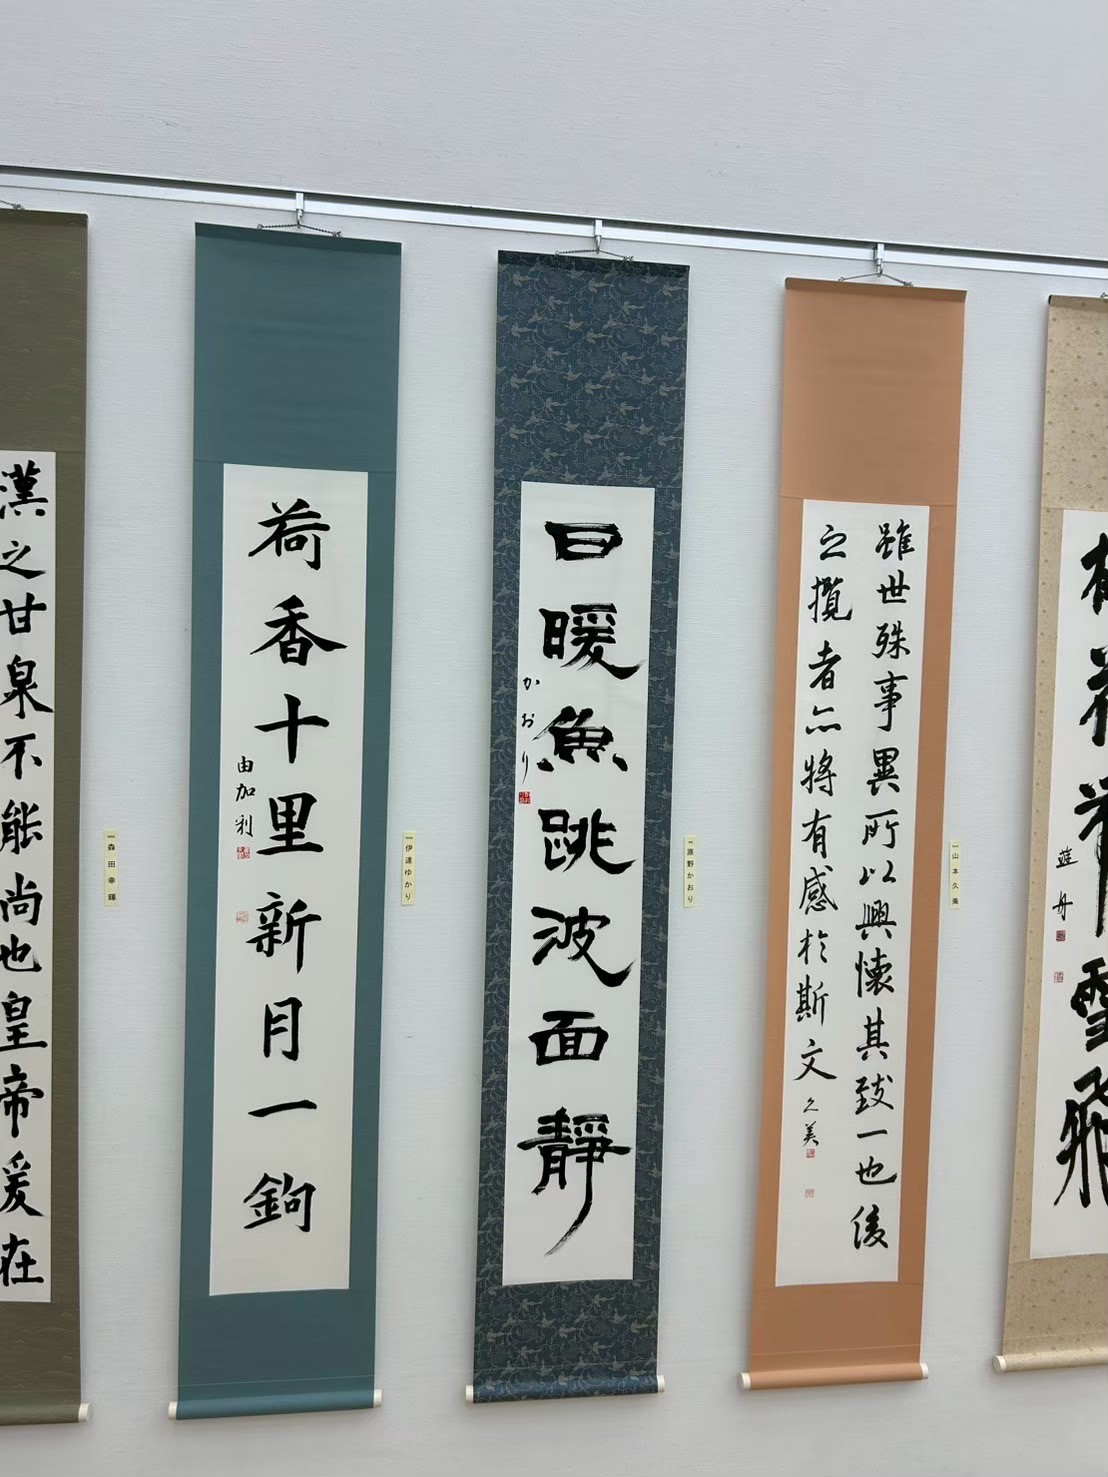 雪飛
雖世殊事異所以興懷其致一也後
之攬者亦将有感於斯文 久美
山本久美
日暖魚跳波面靜
かおり
原野かおり
荷香十里新月一鉤
由加利
伊達ゆかり
漢之甘泉不能尚也皇帝爰在
森田幸輝